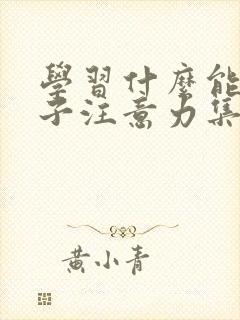 學習什麼能
子注意力集
黃小青